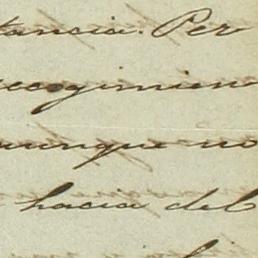 tancia. Per
ecogimien
aunque no
hacia del